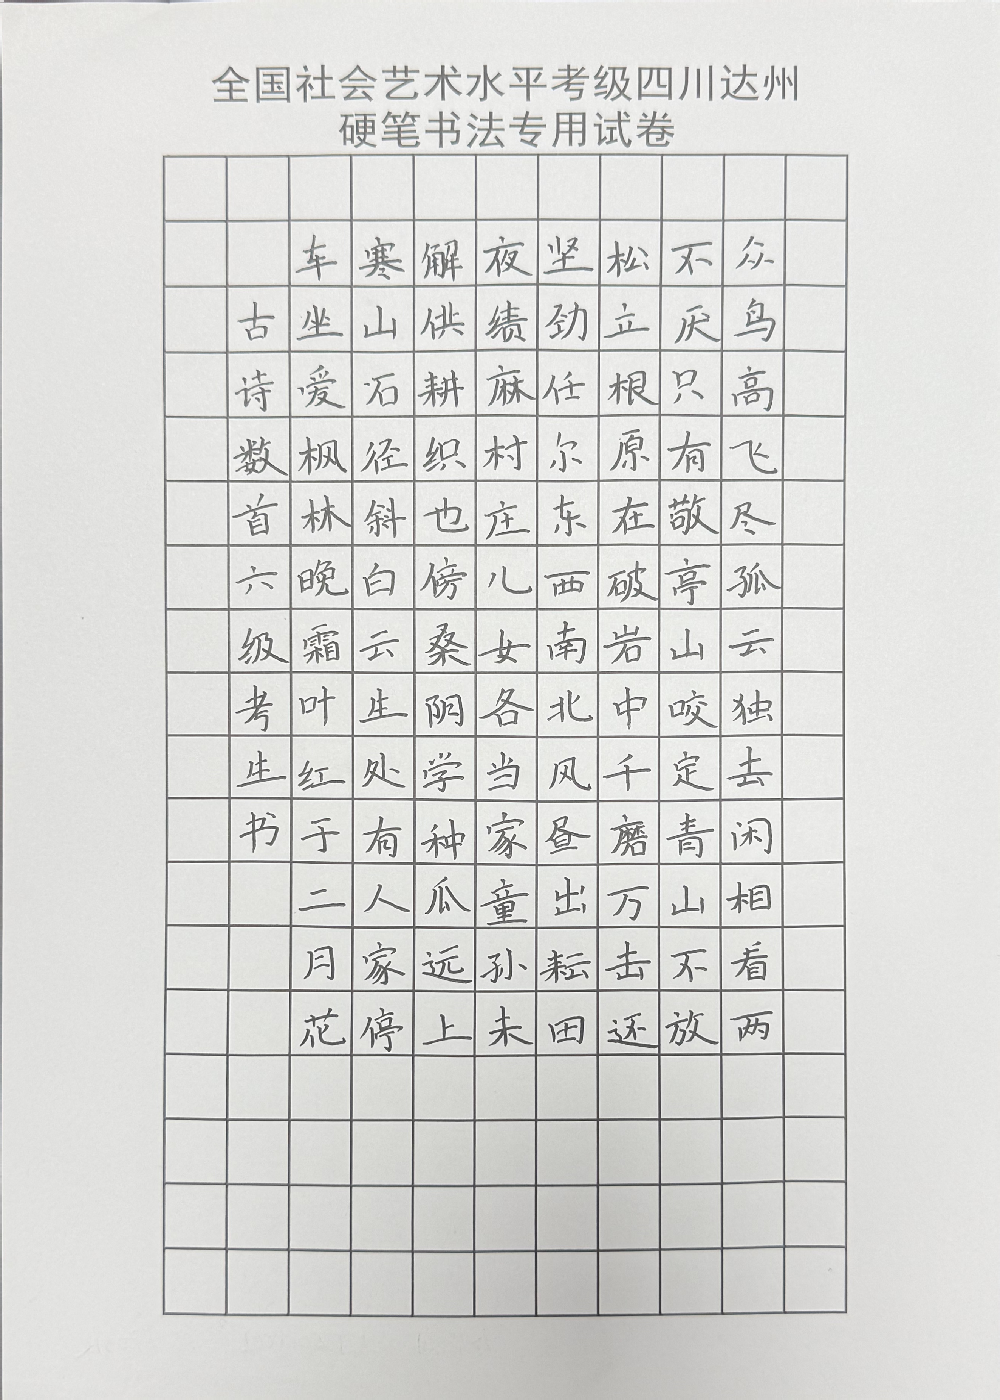 全国社会艺术水平考级四川达州
硬笔书法专用试卷
众鸟高飞尽孤云独去闲相看两
不厌只有敬亭山咬定青山不放
松立根原在破岩中千磨万击还
坚劲任尔东西南北风昼出耘田
夜绩麻村庄儿女各当家童孙未
解供耕织也傍桑阴学种瓜远上
寒山石径斜白云生处有人家停
车坐爱枫林晚霜叶红于二月花
古诗数首六级考生书